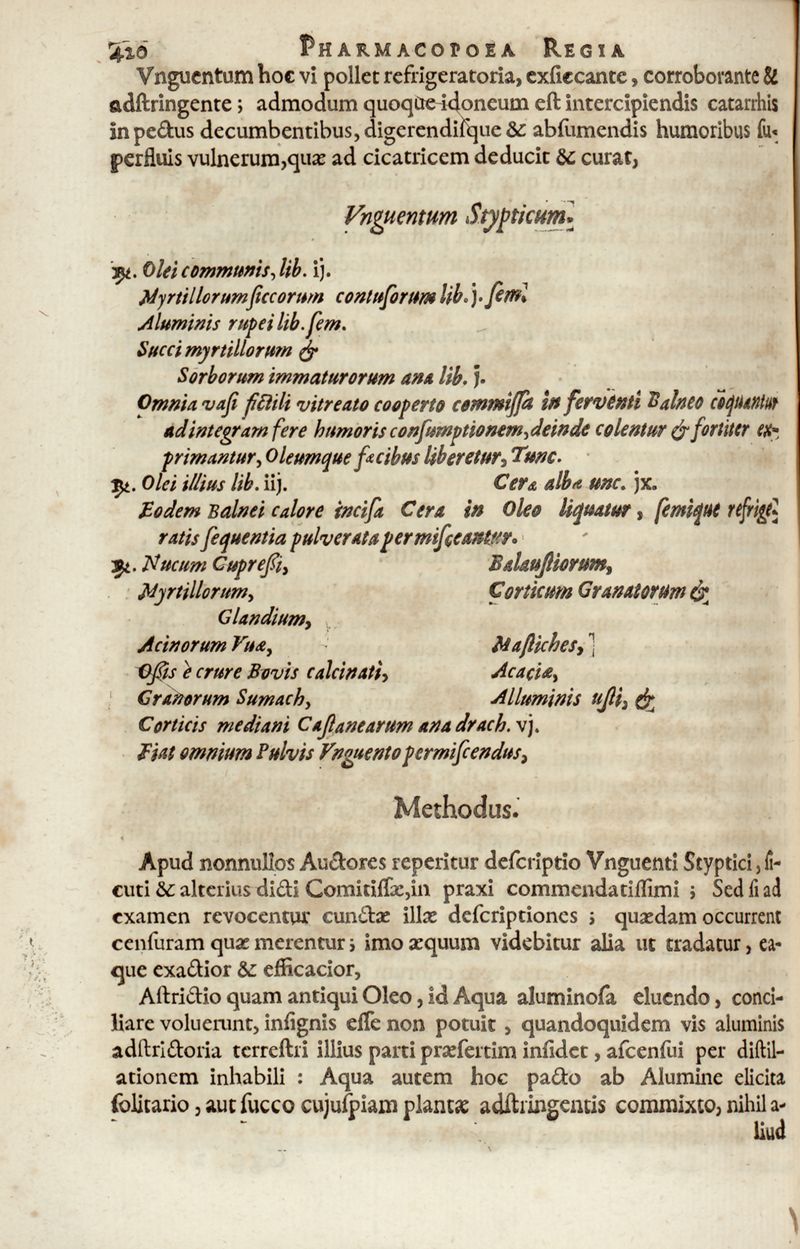 420 PHARMACOPOEA REGIA
Vnguentum hoc vi pollet refrigeratoria, exſiccante, corroborante &
adſtringente; admodum quoque idoneum eſt intercipiendis catarrhis
in pectus decumbentibus, digerendiſque & abſumendis humoribus ſu-
perfluis vulnerum, quæ ad cicatricem deducit & curat,
Vnguentum Stypticum.
℞. Olei communis, lib. ij.
Myrtillorum ſiccorum contuſorum lib. j. ſem.
Aluminis rupei lib. ſem.
Succi myrtillorum &
Sorborum immaturorum ana lib. j.
Omnia vaſi fictili vitreato cooperto commiſſa in ferventi Balneo coquantur
ad integram fere humoris conſumptionem, deinde colentur & fortiter ex-
primantur, Oleumque fæcibus liberetur, Tunc.
℞. Olei illius lib. iij. Ceræ albæ unc. jx.
Eodem Balnei calore inciſa Cera in Oleo liquatur, ſemique refrige-
ratis ſequentia pulverata permiſceantur.
℞. Nucum Cupreſſi, Balauſtiorum,
Myrtillorum, Corticum Granatorum &
Glandium,
Acinorum Vuæ, Maſtiches,
Oſſis è crure Bovis calcinati, Acaciæ,
Granorum Sumach, Alluminis uſti, &
Corticis mediani Caſtanearum ana drach. vj.
Fiat omnium Pulvis Vnguento permiſcendus,
Methodus.
Apud nonnullos Auctores reperitur deſcriptio Vnguenti Styptici, ſi-
cuti & alterius dicti Comitiſſæ, in praxi commendatiſſimi; Sed ſi ad
examen revocentur cunctæ illæ deſcriptiones; quædam occurrent
cenſuram quæ merentur; imo æquum videbitur alia ut tradatur, ea-
que exactior & efficacior,
Aſtrictio quam antiqui Oleo, id Aqua aluminoſa eluendo, conci-
liare voluerunt, inſignis eſſe non potuit, quandoquidem vis aluminis
adſtrictoria terreſtri illius parti præſertim inſidet, aſcenſui per diſtil-
ationem inhabili : Aqua autem hoc pacto ab Alumine elicita
ſolitario, aut ſucco cujuſpiam plantæ adſtringentis commixto, nihil a-
liud